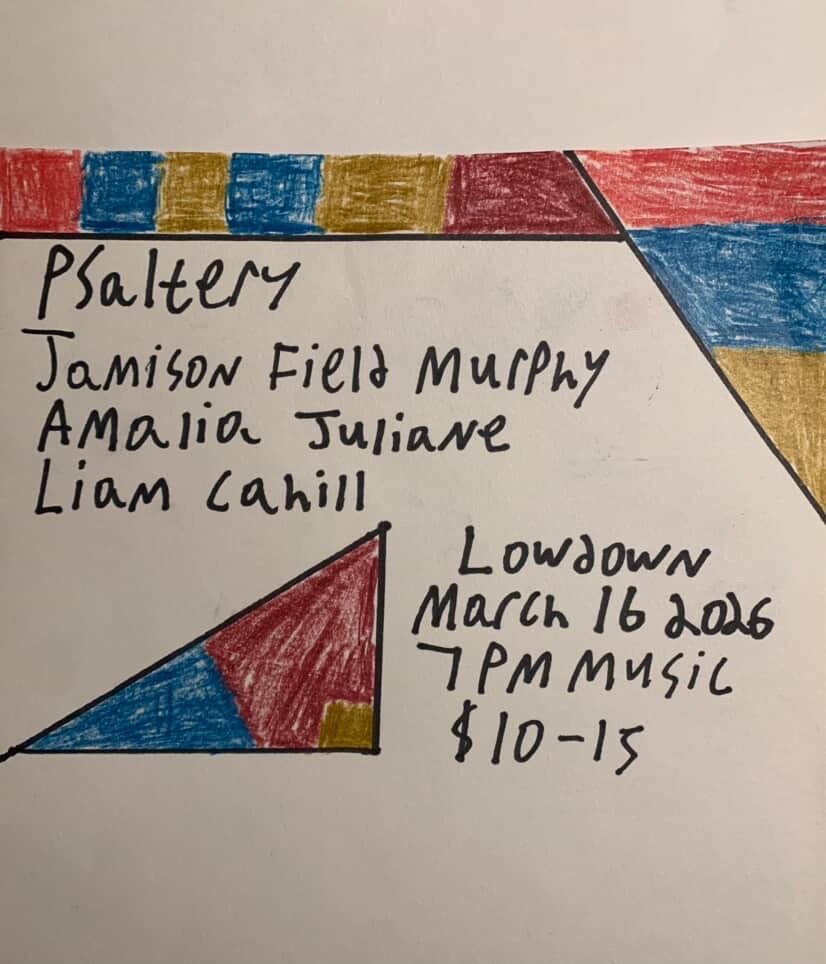 Psaltery
Jamison Field Murphy
Amalia Juliane
Liam Cahill
Lowdown
March 16 2026
7PM Music
$10-15